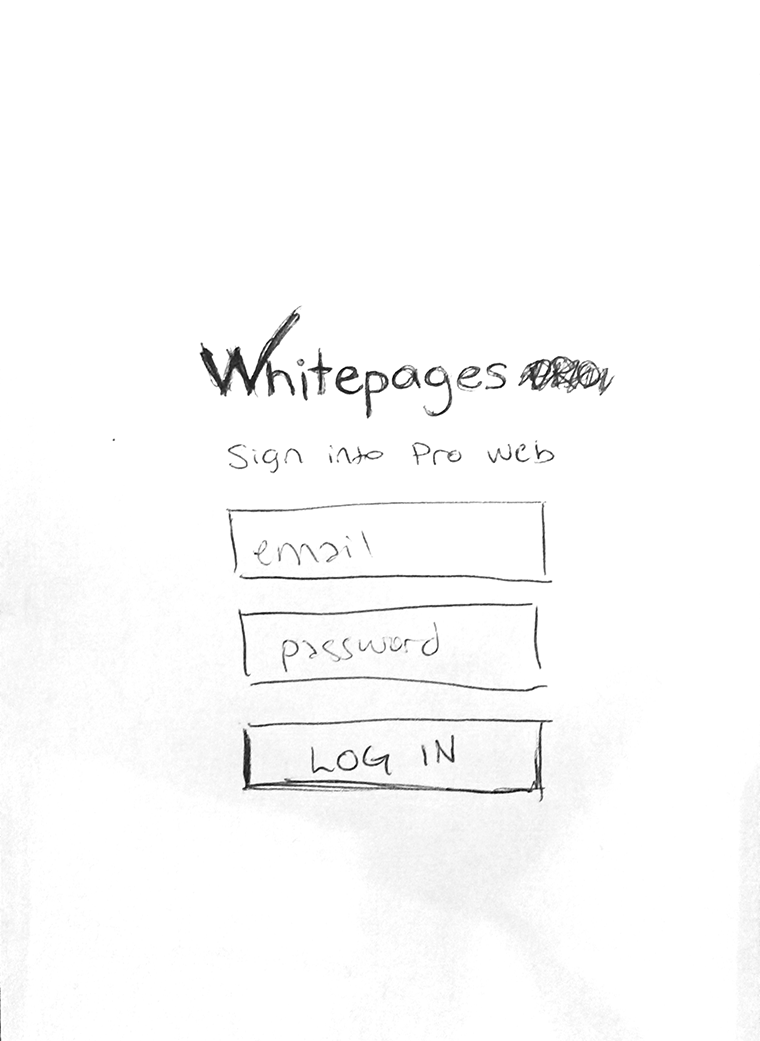 Whitepages
Sign into Pro Web
email
password
LOG IN